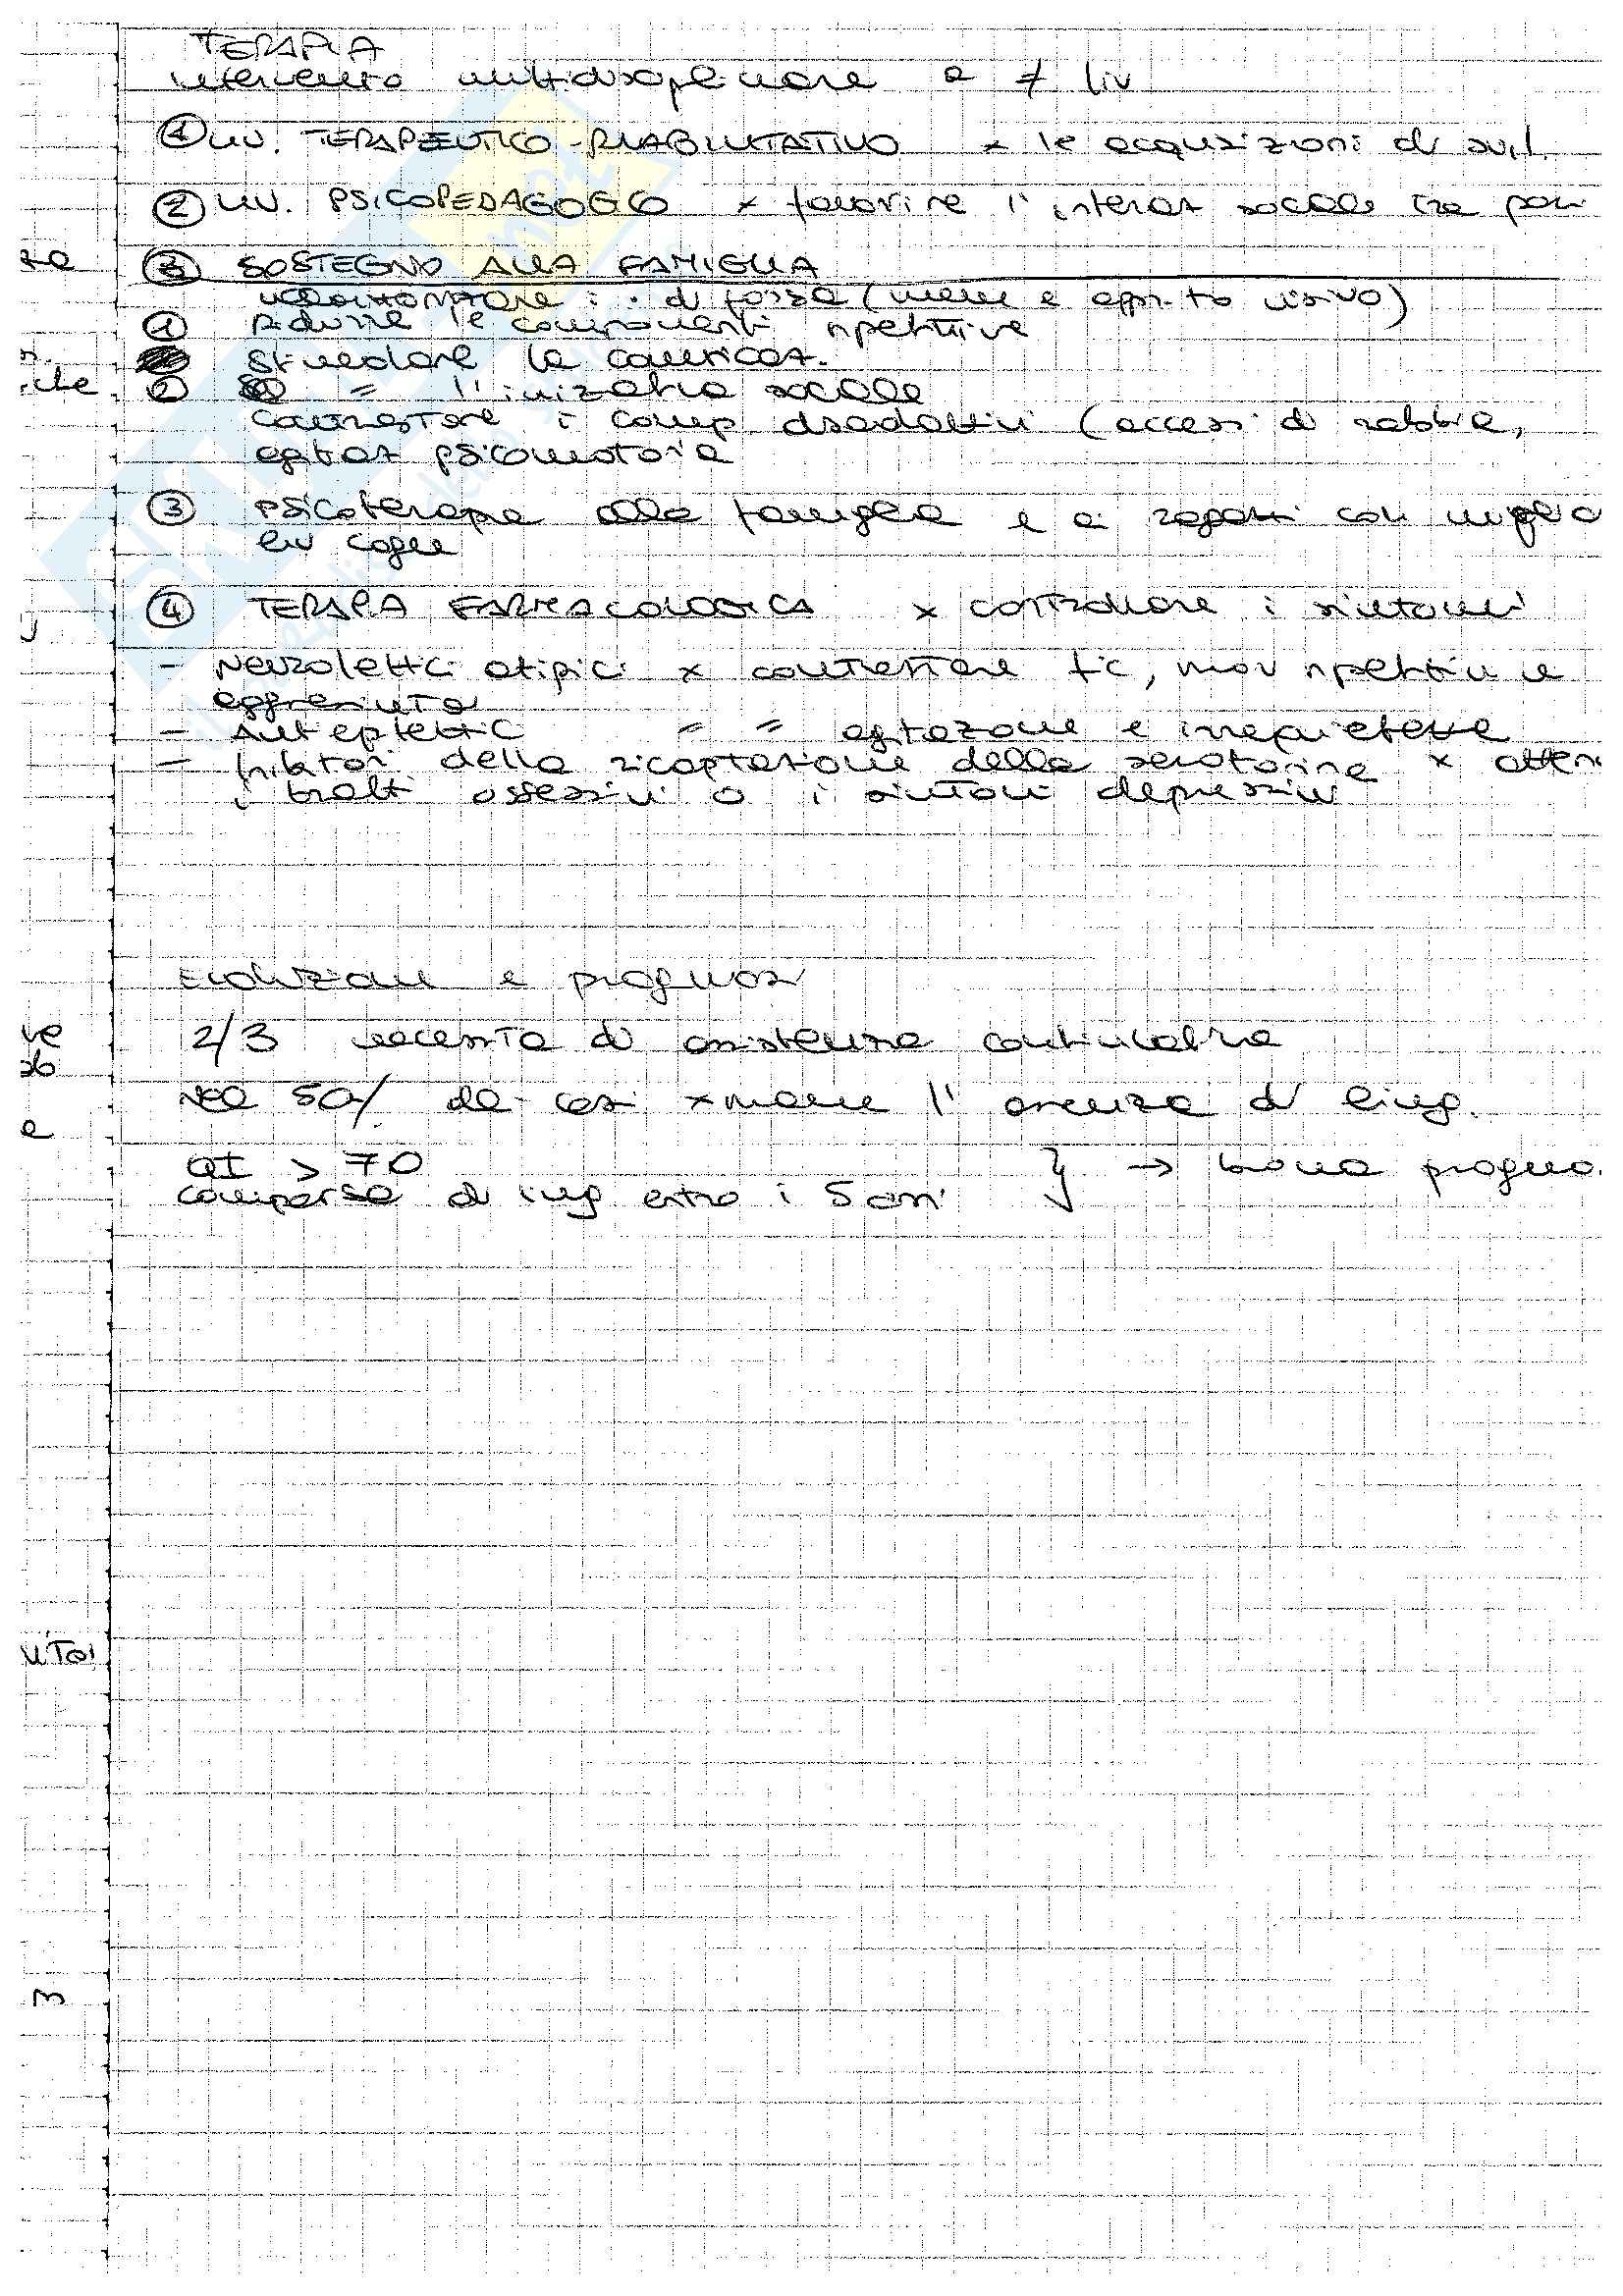 TERAPIA
intervento multidisciplinare a ≠ liv
① LIV. TERAPEUTICO-RIABILITATIVO x le acquisizioni di svil.
② LIV. PSICOPEDAGOGICO x favorire l'interaz sociale tra pari
te
③ SOSTEGNO ALLA FAMIGLIA
: • di forza (mem e app.to visivo)
① Ridurre le componenti ripetitive
Stimolare la comunicaz.
che ② = l'iniziativa sociale
Contrastare i comp disadattivi (accessi di rabbia,
agitaz psicomotoria
③ psicoterapia alla famiglia e ai ragazzi con miglio
liv cogn
④ TERAPIA FARMACOLOGICA x controllare i sintomi
- Neurolettici atipici x contrastare tic, mov ripetitivi e
aggressività
- Antiepilettici = = agitazione e irrequietezza
- Inibitori della ricaptazione della serotonina x atten
i tratti ossessivi o i sintomi depressivi
Evoluzione e prognosi
ve
2/3 necessita di assistenza continuativa
Nel 50% dei casi xmane l'assenza di ling.
e
QI > 70 } → buona progno
comparsa di ling entro i 5 anni